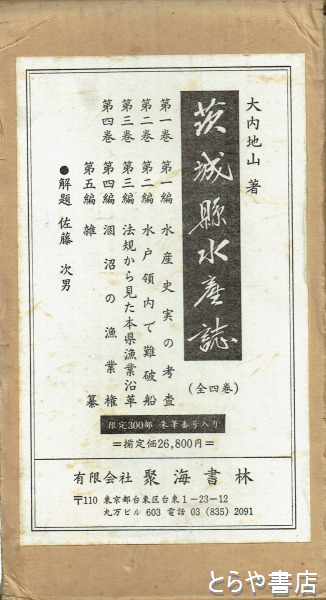 大内地山 著
茨城縣水産誌
(全四巻)
第一巻 第一編 水産史実の考査
第二巻 第二編 水戸領内で難破船
第三巻 第三編 法規から見た本県漁業沿革
第四巻 第四編 涸沼の漁業権
第五編 雑纂
●解題 佐藤次男
限定300部 朱筆番号入り
=揃定価26,800円=
有限会社 聚海書林
〒110 東京都台東区台東1-23-12
丸万ビル 603 電話 03 (835) 2091
とらや書店